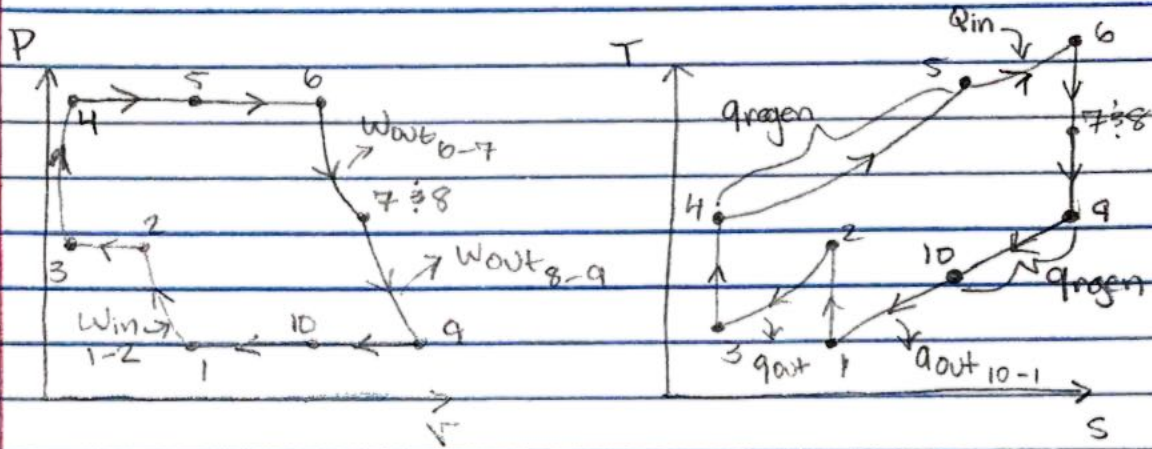 P
4
5
6
Wout 6-7
7 & 8
2
3
Wout 8-9
Win 1-2
1
10
9
v
T
Qin
6
5
qregen
7 & 8
4
9
2
10
qregen
3
qout
1
qout 10-1
s